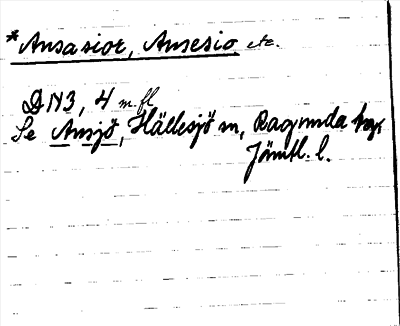 *Ansasior, Ansesio etc.
DN3, 4 m.fl
Se Ansjö, Hällesjö sn, Ragunda tgs
Jämtl. l.